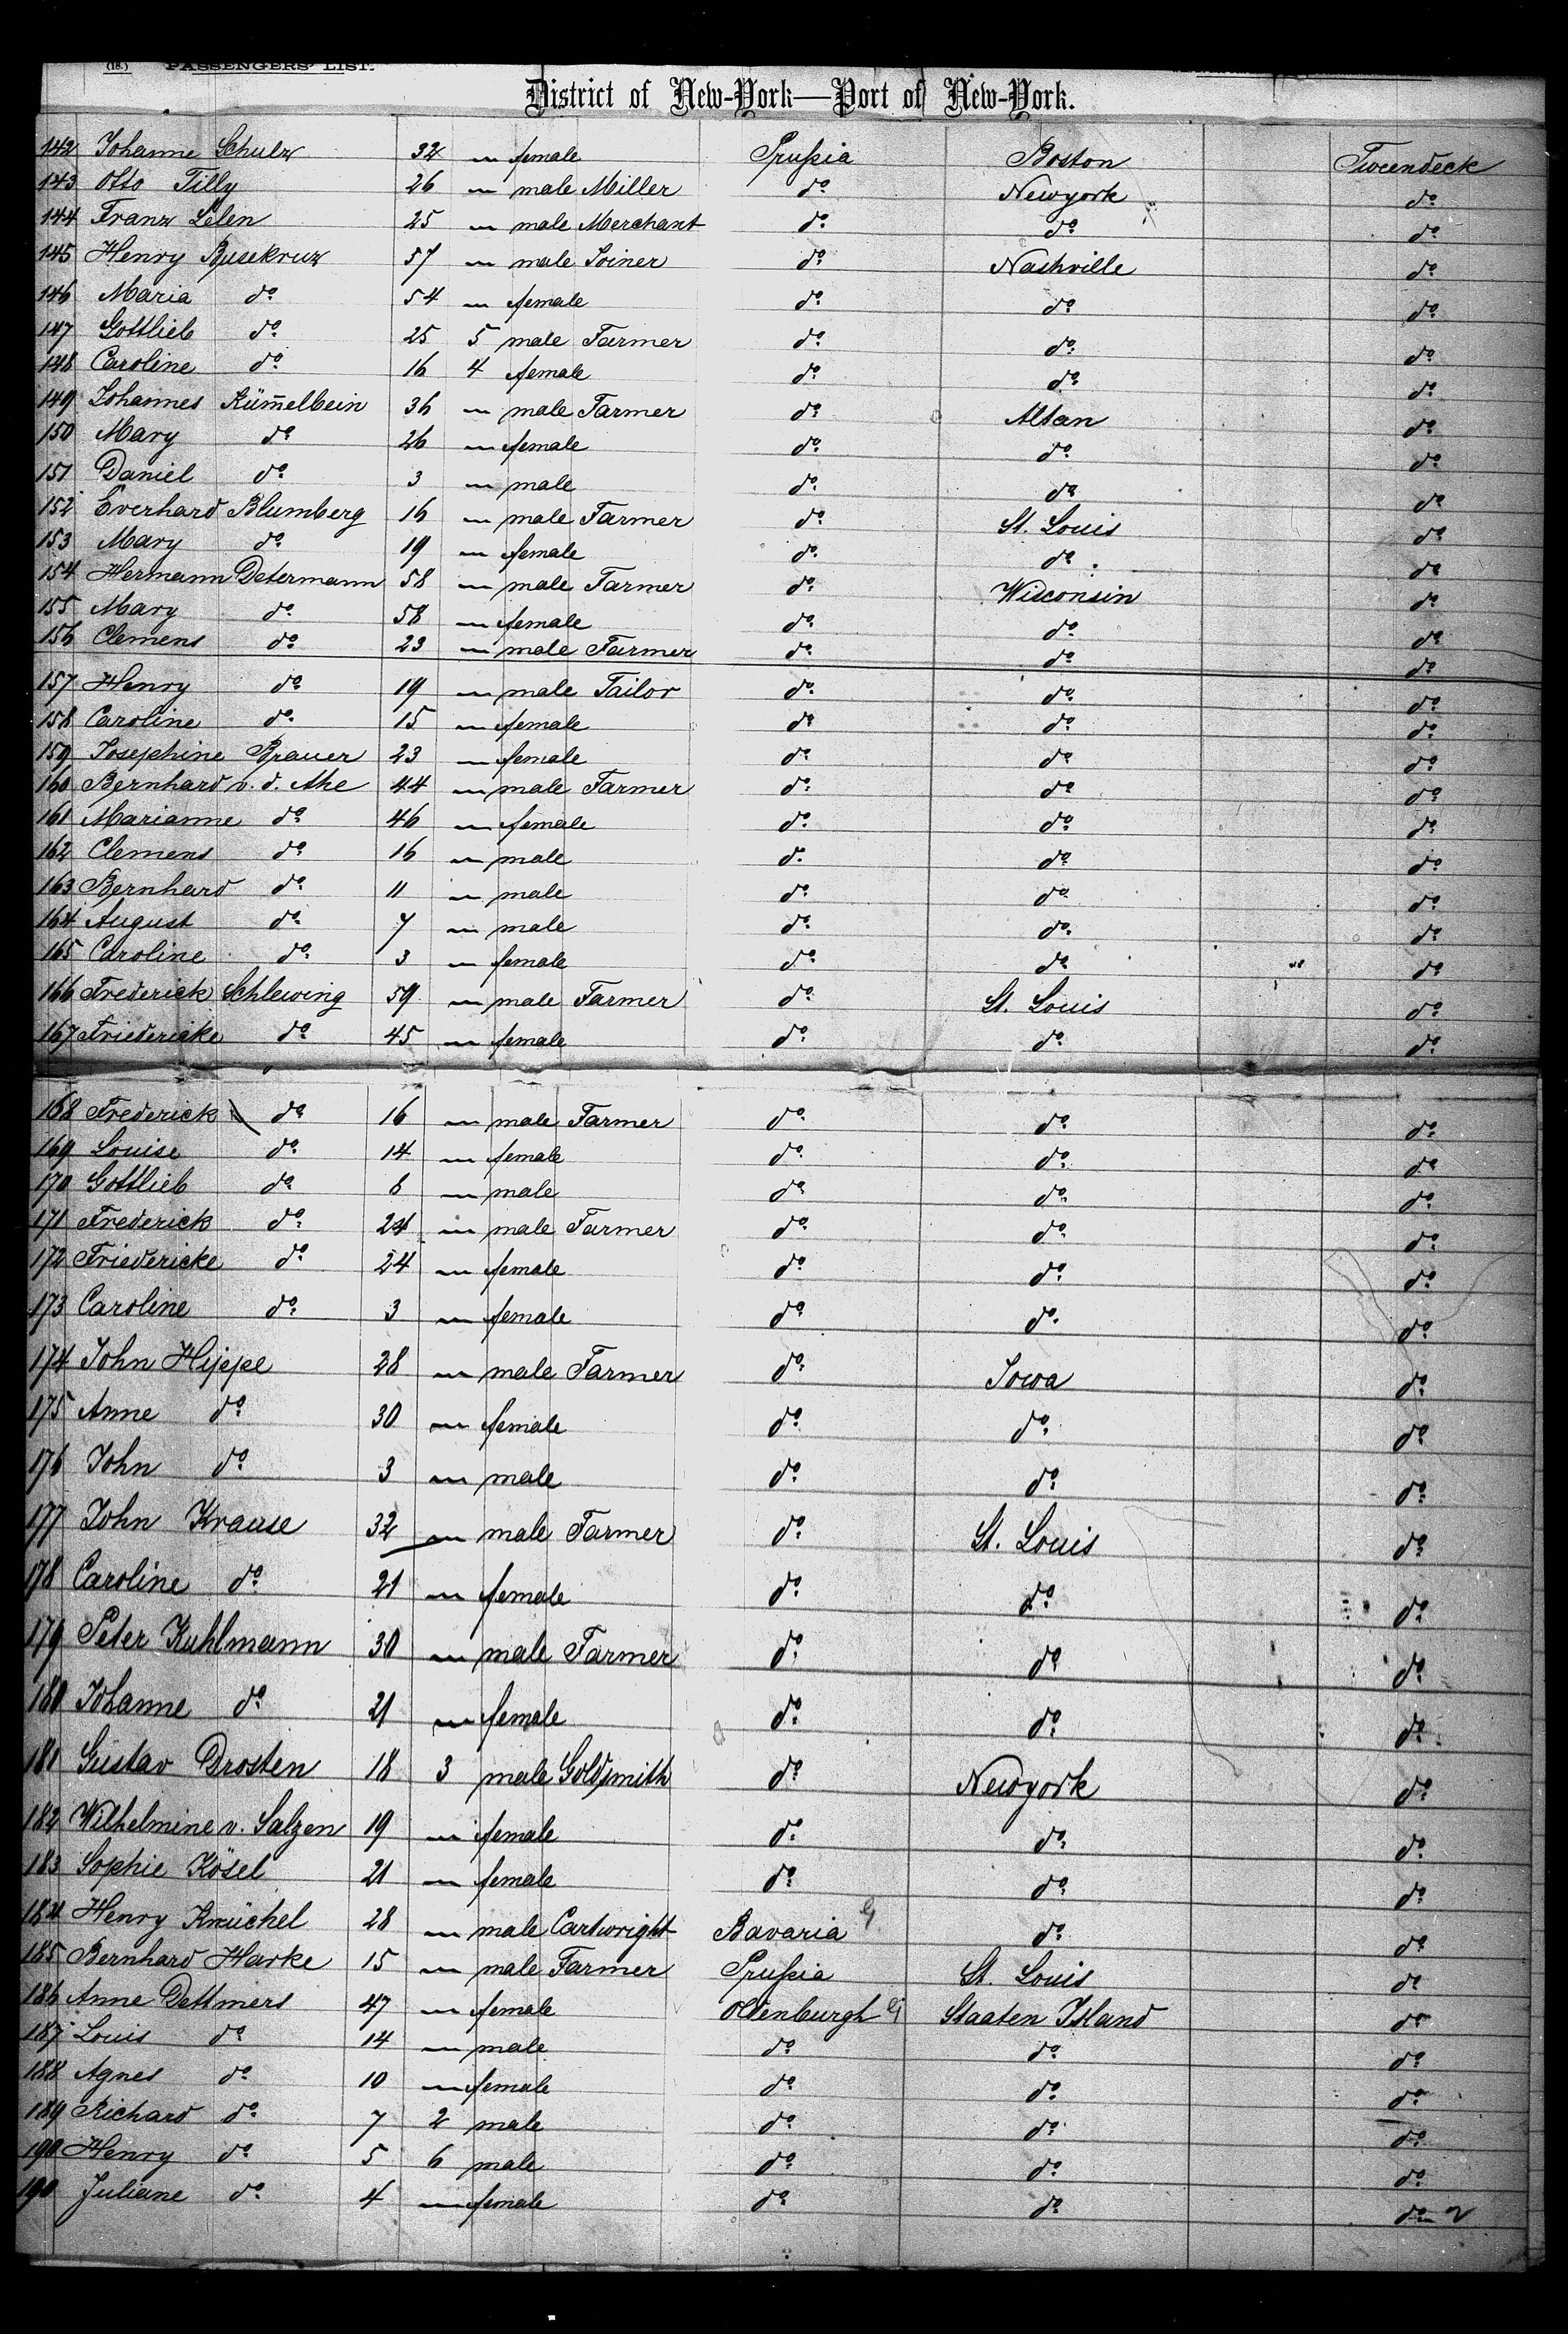 (18.) PASSENGERS' LIST.
District of New-York—Port of New-York.
142 Johanne Schulz 32 — female Prußia Boston Tweendeck
143 Otto Tilly 26 — male Miller do Newyork do
144 Franz Lelen 25 — male Merchant do do do
145 Henry Busekruz 57 — male Joiner do Nashville do
146 Maria do 54 — female do do do
147 Gottlieb do 25 5 male Farmer do do do
148 Caroline do 16 4 female do do do
149 Johannes Küm̄elbein 36 — male Farmer do Altan do
150 Mary do 26 — female do do do
151 Daniel do 3 — male do do do
152 Everhard Blumberg 16 — male Farmer do St. Louis do
153 Mary do 19 — female do do do
154 Hermann Determann 58 — male Farmer do Wisconsin do
155 Mary do 58 — female do do do
156 Clemens do 23 — male Farmer do do do
157 Henry do 19 — male Tailor do do do
158 Caroline do 15 — female do do do
159 Josephine Brauer 23 — female do do do
160 Bernhard v. d. Ahe 44 — male Farmer do do do
161 Marianne do 46 — female do do do
162 Clemens do 16 — male do do do
163 Bernhard do 11 — male do do do
164 August do 7 — male do do do
165 Caroline do 3 — female do do do
166 Frederick Schlewing 59 — male Farmer do St. Louis do
167 Friedericke do 45 — female do do do
168 Frederick do 16 — male Farmer do do do
169 Louise do 14 — female do do do
170 Gottlieb do 6 — male do do do
171 Frederick do 24 — male Farmer do do do
172 Friedericke do 24 — female do do do
173 Caroline do 3 — female do do do
174 John Hippe 28 — male Farmer do Iowa do
175 Anne do 30 — female do do do
176 John do 3 — male do do do
177 John Krause 32 — male Farmer do St. Louis do
178 Caroline do 21 — female do do do
179 Peter Kuhlmann 30 — male Farmer do do do
180 Johanne do 21 — female do do do
181 Gustav Drosten 18 3 male Goldsmith do Newyork do
182 Wilhelmine v. Salzen 19 — female do do do
183 Sophie Kösel 21 — female do do do
184 Henry Knüchel 28 — male Cartwright Bavaria G do do
185 Bernhard Harke 15 — male Farmer Prußia St. Louis do
186 Anne Dettmers 47 — female Oldenburgh G Staaten Island do
187 Louis do 14 — male do do do
188 Agnes do 10 — female do do do
189 Richard do 7 2 male do do do
190 Henry do 5 6 male do do do
190 Juliane do 4 — female do do do